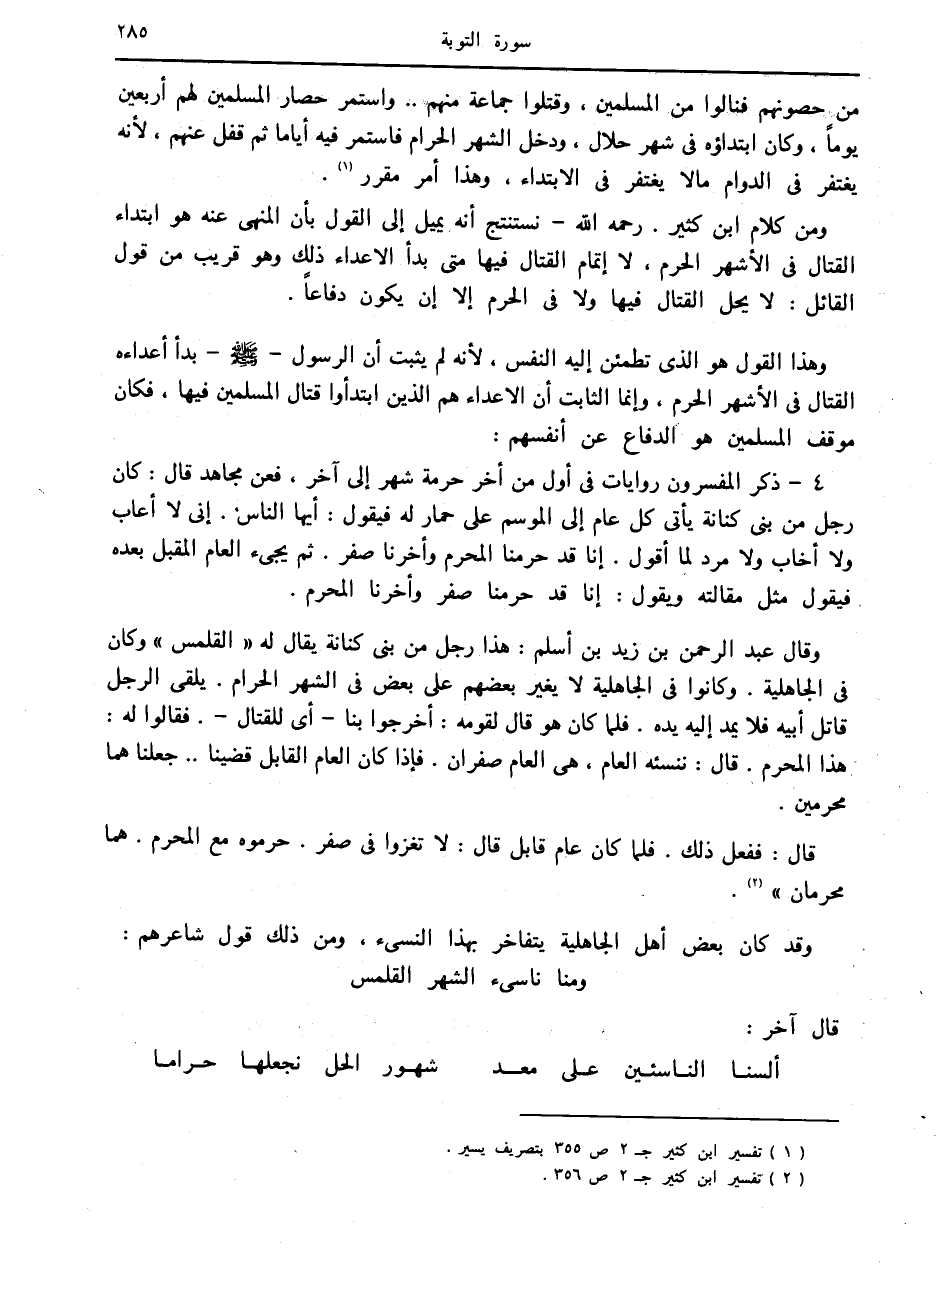 سورة التوبة
٢٨٥
من حصونهم فنالوا من المسلمين ، وقتلوا جماعة منهم .. واستمر حصار المسلمين لهم أربعين
يوماً ، وكان ابتداؤه فى شهر حلال ، ودخل الشهر الحرام فاستمر فيه أياما ثم قفل عنهم ، لأنه
يغتفر فى الدوام مالا يغتفر فى الابتداء ، وهذا أمر مقرر (١) .
ومن كلام ابن كثير . رحمه الله – نستنتج أنه يميل إلى القول بأن المنهى عنه هو ابتداء
القتال فى الأشهر الحرم ، لا إتمام القتال فيها متى بدأ الاعداء ذلك وهو قريب من قول
القائل : لا يحل القتال فيها ولا فى الحرم إلا إن يكون دفاعاً .
وهذا القول هو الذى تطمئن إليه النفس ، لأنه لم يثبت أن الرسول – ﷺ – بدأ أعداءه
القتال فى الأشهر الحرم ، وإنما الثابت أن الاعداء هم الذين ابتدأوا قتال المسلمين فيها ، فكان
موقف المسلمين هو الدفاع عن أنفسهم :
٤ – ذكر المفسرون روايات فى أول من أخر حرمة شهر إلى آخر ، فعن مجاهد قال : كان
رجل من بنى كنانة يأتى كل عام إلى الموسم على حمار له فيقول : أيها الناس . إنى لا أعاب
ولا أخاب ولا مرد لما أقول . إنا قد حرمنا المحرم وأخرنا صفر . ثم يجىء العام المقبل بعده
فيقول مثل مقالته ويقول : إنا قد حرمنا صفر وأخرنا المحرم .
وقال عبد الرحمن بن زيد بن أسلم : هذا رجل من بنى كنانة يقال له « القلمس » وكان
فى الجاهلية . وكانوا فى الجاهلية لا يغير بعضهم على بعض فى الشهر الحرام . يلقى الرجل
قاتل أبيه فلا يمد إليه يده . فلما كان هو قال لقومه : أخرجوا بنا – أى للقتال – . فقالوا له :
هذا المحرم . قال : ننسئه العام ، هى العام صفران . فإذا كان العام القابل قضينا .. جعلنا هما
محرمين .
قال : ففعل ذلك . فلما كان عام قابل قال : لا تغزوا فى صفر . حرموه مع المحرم . هما
محرمان » (٢) .
وقد كان بعض أهل الجاهلية يتفاخر بهذا النسىء ، ومن ذلك قول شاعرهم :
ومنا ناسىء الشهر القلمس
قال آخر :
ألسنا الناسئين على معد شهور الحل نجعلها حراما
( ١ ) تفسير ابن كثير جـ ٢ ص ٣٥٥ بتصريف يسير .
( ٢ ) تفسير ابن كثير جـ ٢ ص ٣٥٦ .